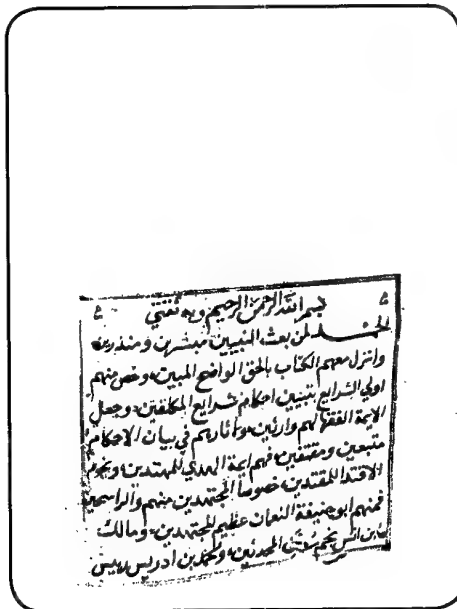 بسم الله الرحمن الرحيم وبه ثقتي
الحمد لمن بعث النبيين مبشرين ومنذرين
وانزل معهم الكتاب بالحق الواضح المبين وخص منهم
اولي الشرايع بتبيين احكام شرايع المكلفين وجعل
الايمة الفقها لهم وارثين واثارهم في بيان الاحكام
متبعين ومقتفين فهم ايمة الهدي للمهتدين ونجوم
الاقتدا للمقتدين خصوصا المجتهدين منهم والراسخين
فمنهم ابو حنيفة النعمان عظيم المجتهدين ومالك
بن انس نجم المحدثين ومحمد بن ادريس رييس